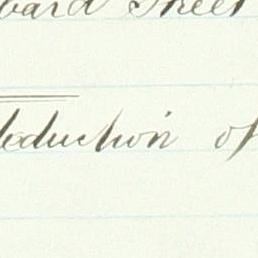 bard Street
deduction of